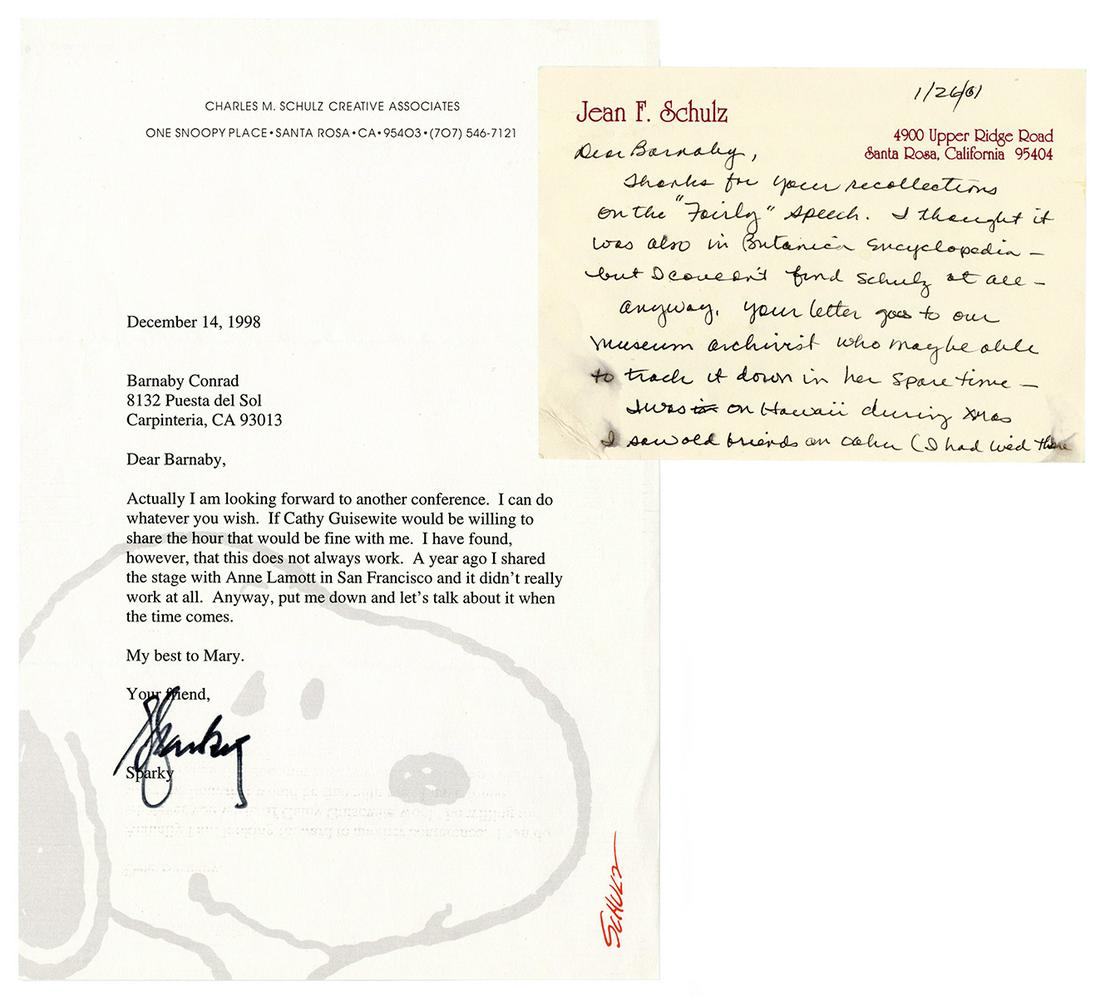 CHARLES M. SCHULZ CREATIVE ASSOCIATES
ONE SNOOPY PLACE • SANTA ROSA • CA • 95403 • (707) 546-7121
December 14, 1998
Barnaby Conrad
8132 Puesta del Sol
Carpinteria, CA 93013
Dear Barnaby,
Actually I am looking forward to another conference. I can do
whatever you wish. If Cathy Guisewite would be willing to
share the hour that would be fine with me. I have found,
however, that this does not always work. A year ago I shared
the stage with Anne Lamott in San Francisco and it didn't really
work at all. Anyway, put me down and let's talk about it when
the time comes.
My best to Mary.
Your friend,
Sparky
Sparky
SCHULZ
1/26/01
Jean F. Schulz
4900 Upper Ridge Road
Santa Rosa, California 95404
Dear Barnaby,
Thanks for your recollections
on the "Fairly" speech. I thought it
was also in Butanica Encyclopedia –
but I couldn't find Schulz at all –
anyway, your letter goes to our
museum archivist who may be able
to track it down in her spare time –
I was in on Hawaii during xmas
I saw old friends on oahu (I had lived there